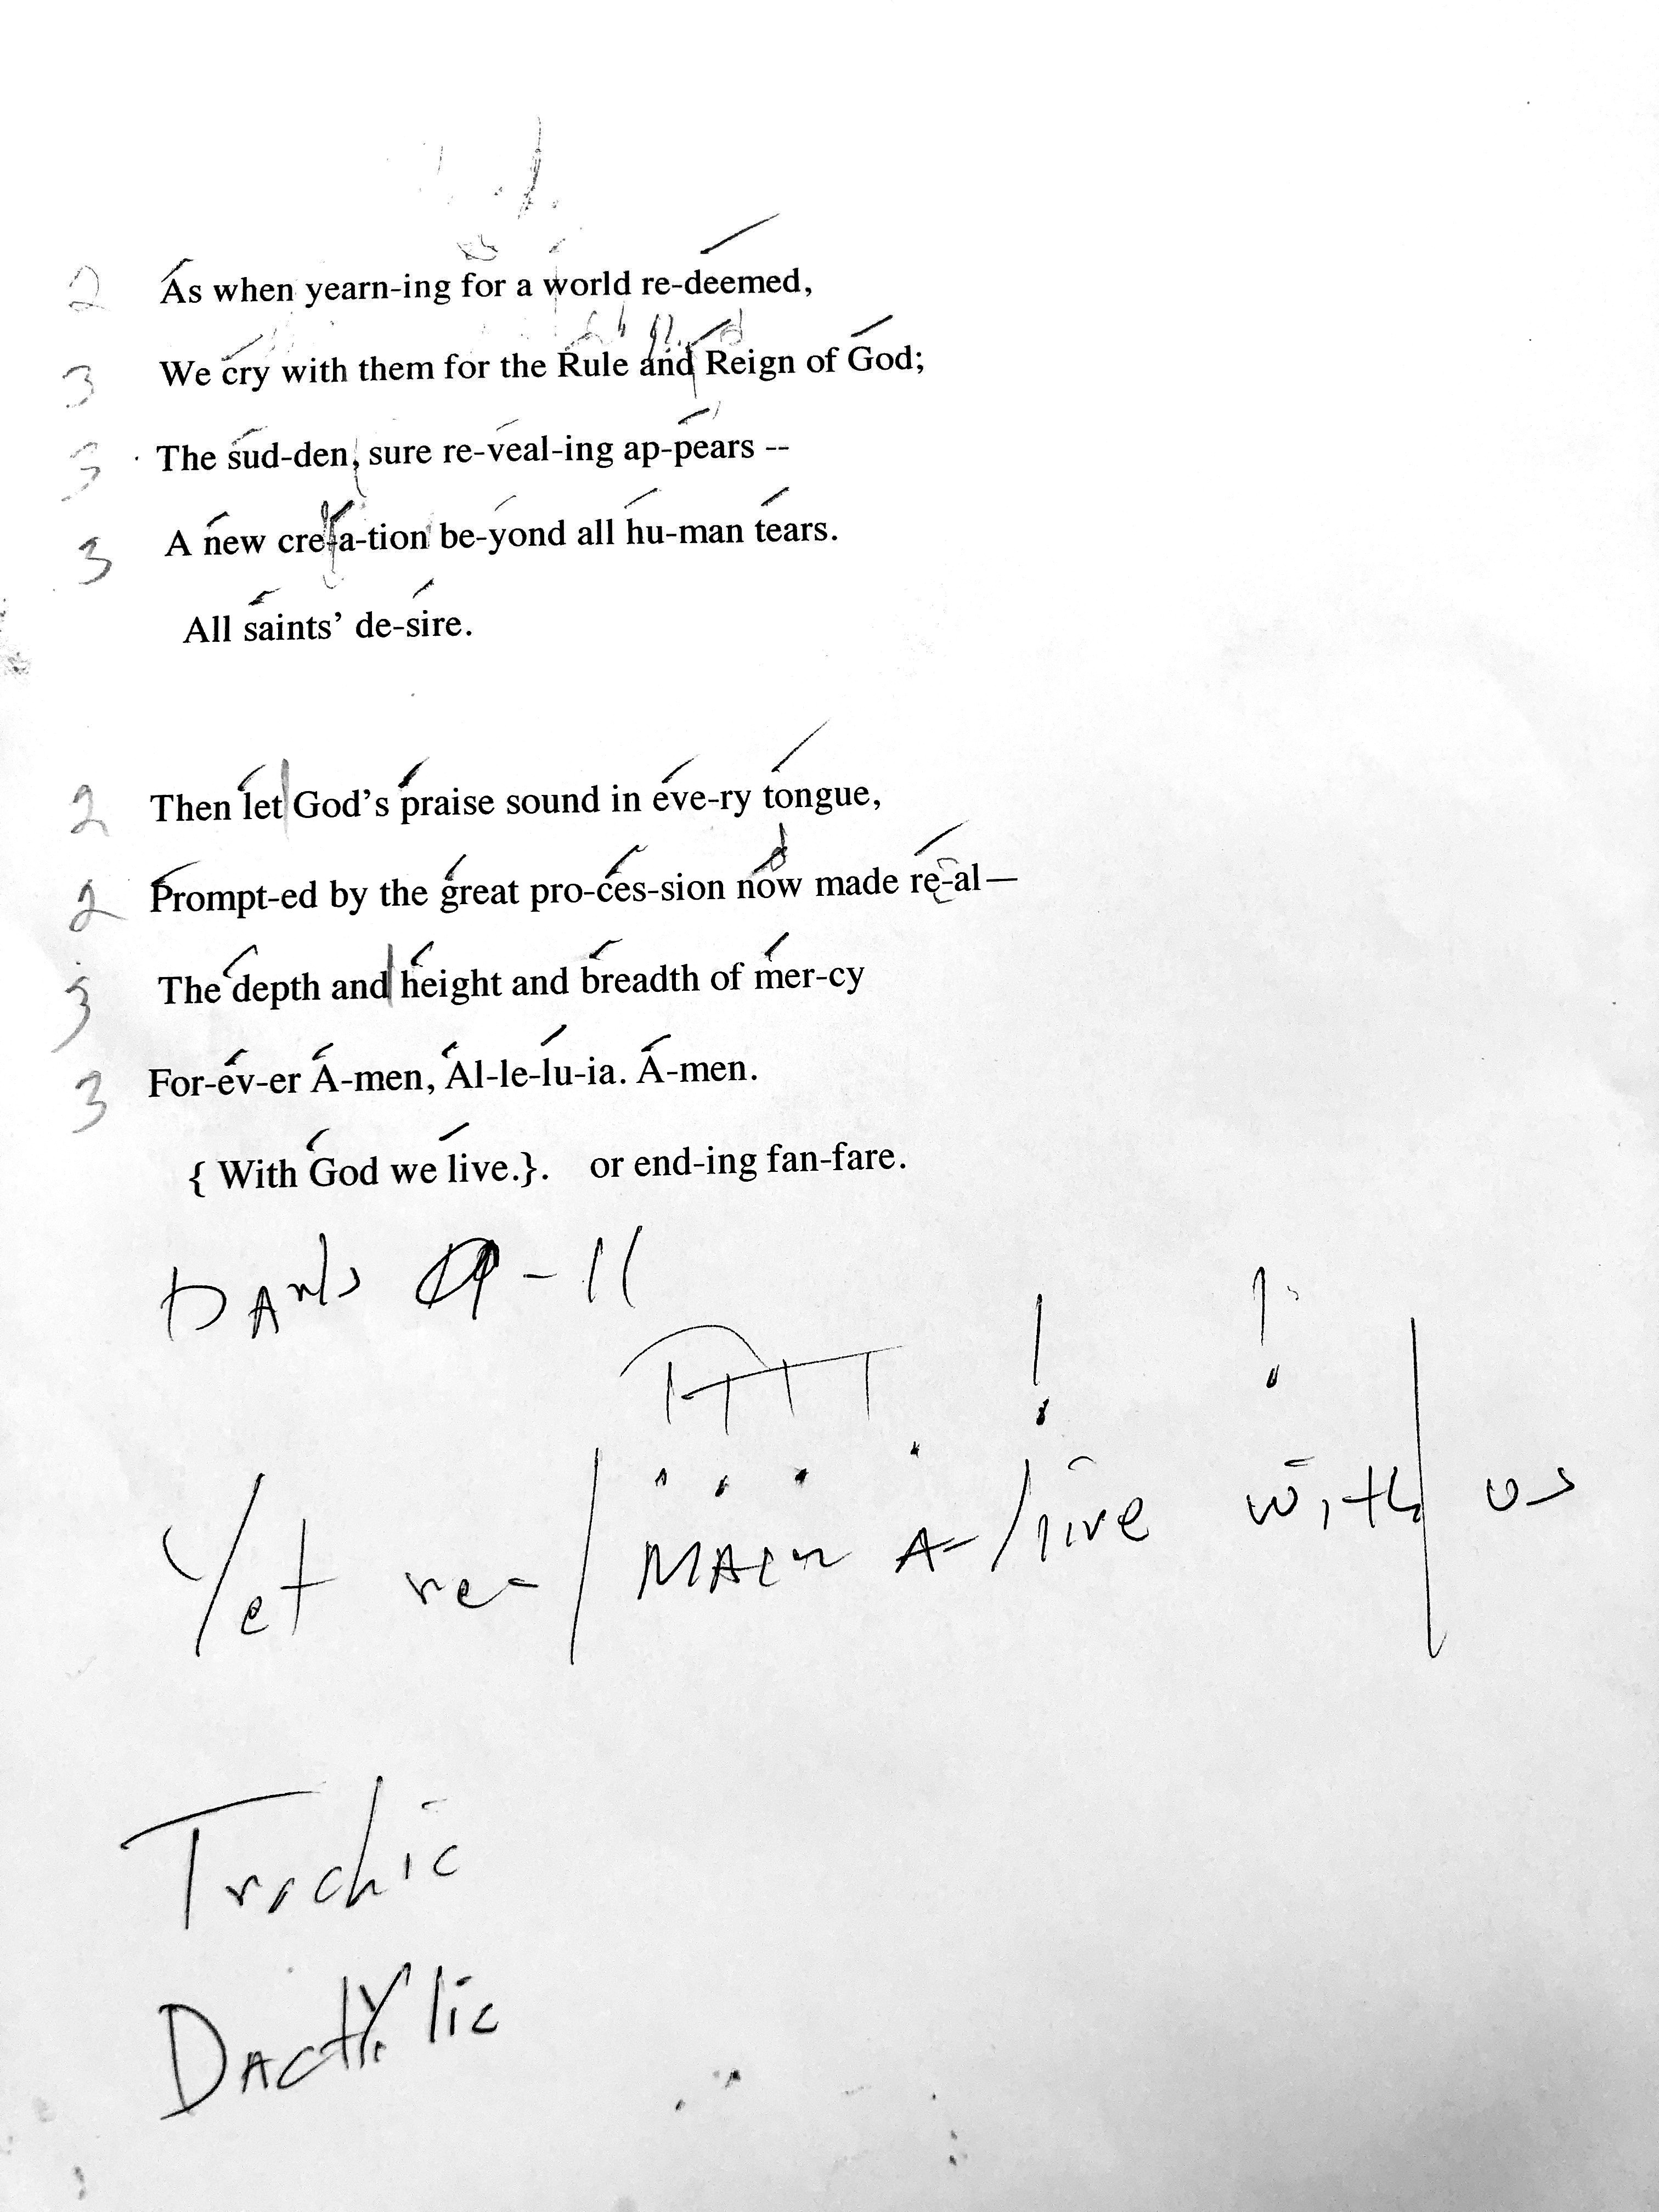 2 As when yearn-ing for a world re-deemed,
3 We cry with them for the Rule and Reign of God;
3 The sud-den, sure re-veal-ing ap-pears --
3 A new cre-a-tion be-yond all hu-man tears.
All saints’ de-sire.
2 Then let God’s praise sound in eve-ry tongue,
2 Prompt-ed by the great pro-ces-sion now made re-al—
3 The depth and height and breadth of mer-cy
3 For-ev-er A-men, Al-le-lu-ia. A-men.
{ With God we live.}. or end-ing fan-fare.
9-11
Yet re- main a-live with us
Trochic
Dactylic